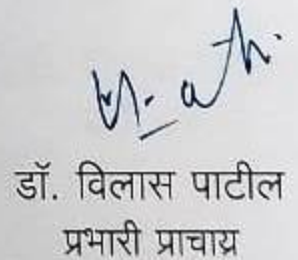 डॉ. विलास पाटील
प्रभारी प्राचाय्र